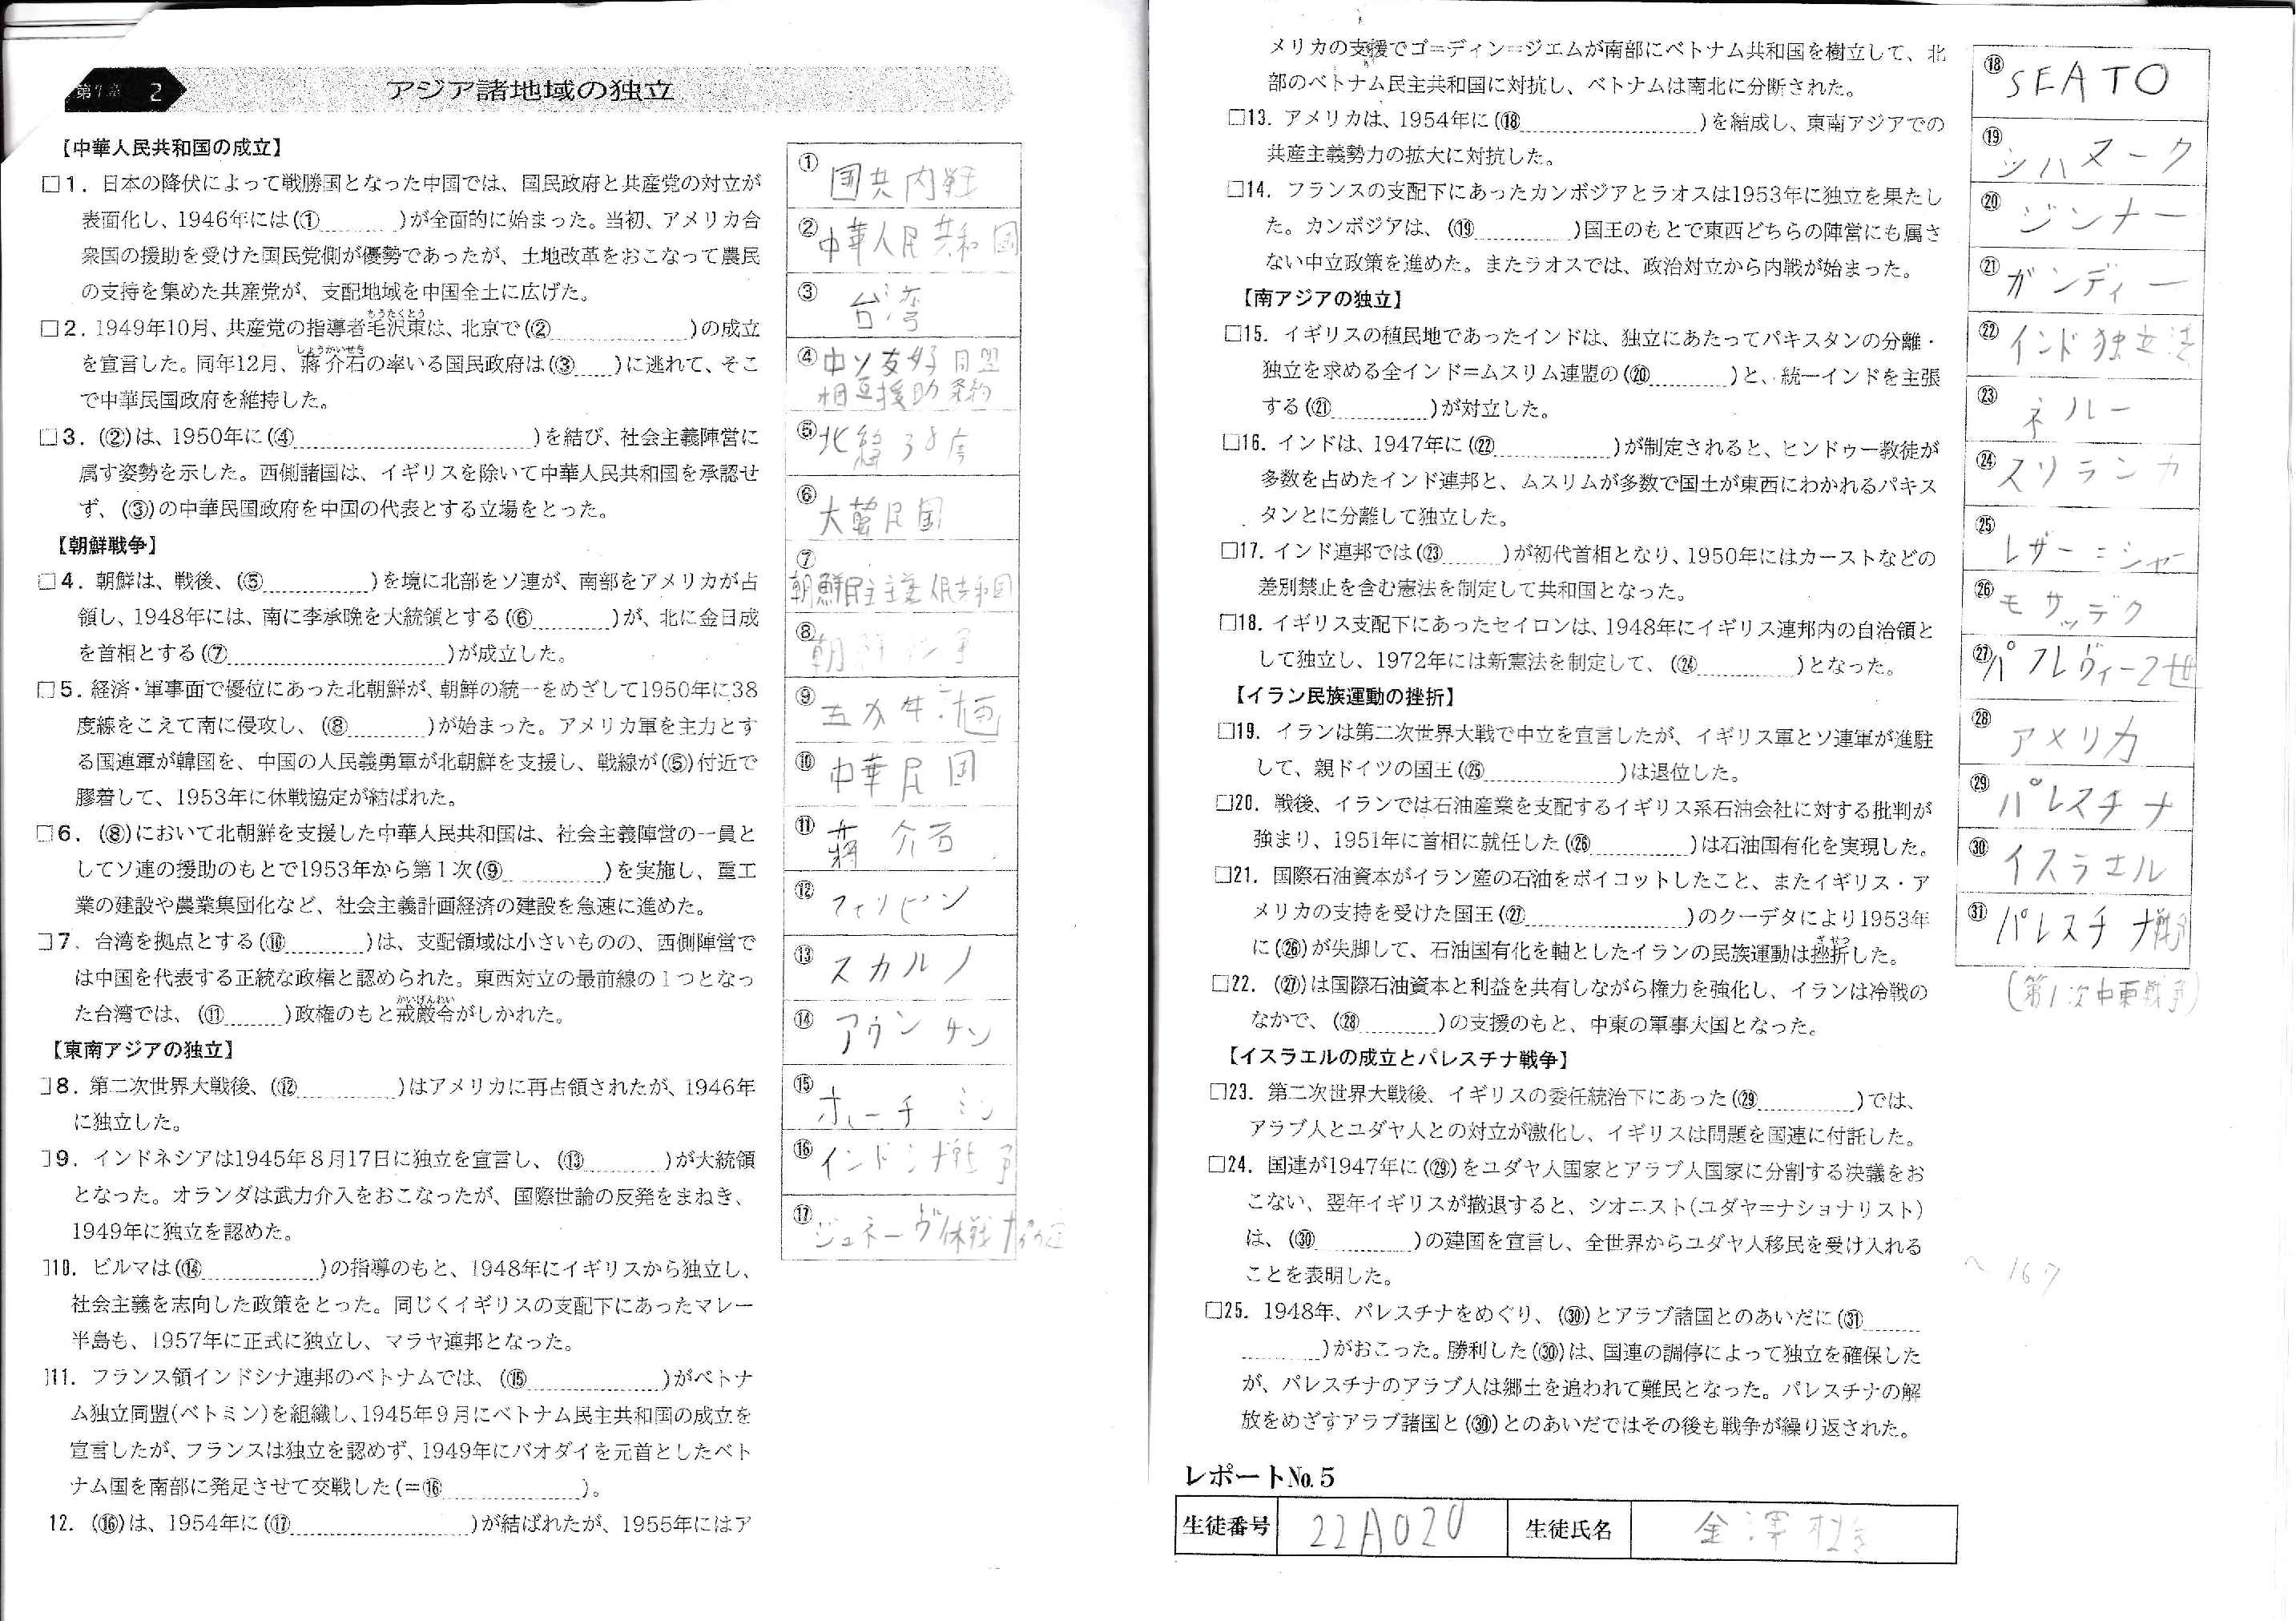 第7章 2 アジア諸地域の独立
【中華人民共和国の成立】
□1. 日本の降伏によって戦勝国となった中国では、国民政府と共産党の対立が
表面化し、1946年には(① )が全面的に始まった。当初、アメリカ合
衆国の援助を受けた国民党側が優勢であったが、土地改革をおこなって農民
の支持を集めた共産党が、支配地域を中国全土に広げた。
□2. 1949年10月、共産党の指導者毛沢東は、北京で(② )の成立
もうたくとう
を宣言した。同年12月、蔣介石の率いる国民政府は(③ )に逃れて、そこ
しょうかいせき
で中華民国政府を維持した。
□3. (②)は、1950年に(④ )を結び、社会主義陣営に
属す姿勢を示した。西側諸国は、イギリスを除いて中華人民共和国を承認せ
ず、(③)の中華民国政府を中国の代表とする立場をとった。
【朝鮮戦争】
□4. 朝鮮は、戦後、(⑤ )を境に北部をソ連が、南部をアメリカが占
領し、1948年には、南に李承晩を大統領とする(⑥ )が、北に金日成
を首相とする(⑦ )が成立した。
□5. 経済・軍事面で優位にあった北朝鮮が、朝鮮の統一をめざして1950年に38
度線をこえて南に侵攻し、(⑧ )が始まった。アメリカ軍を主力とす
る国連軍が韓国を、中国の人民義勇軍が北朝鮮を支援し、戦線が(⑤)付近で
膠着して、1953年に休戦協定が結ばれた。
□6. (⑧)において北朝鮮を支援した中華人民共和国は、社会主義陣営の一員と
してソ連の援助のもとで1953年から第1次(⑨ )を実施し、重工
業の建設や農業集団化など、社会主義計画経済の建設を急速に進めた。
□7. 台湾を拠点とする(⑩ )は、支配領域は小さいものの、西側陣営で
は中国を代表する正統な政権と認められた。東西対立の最前線の1つとなっ
た台湾では、(⑪ )政権のもと戒厳令がしかれた。
かいげんれい
【東南アジアの独立】
□8. 第二次世界大戦後、(⑫ )はアメリカに再占領されたが、1946年
に独立した。
□9. インドネシアは1945年8月17日に独立を宣言し、(⑬ )が大統領
となった。オランダは武力介入をおこなったが、国際世論の反発をまねき、
1949年に独立を認めた。
□10. ビルマは(⑭ )の指導のもと、1948年にイギリスから独立し、
社会主義を志向した政策をとった。同じくイギリスの支配下にあったマレー
半島も、1957年に正式に独立し、マラヤ連邦となった。
□11. フランス領インドシナ連邦のベトナムでは、(⑮ )がベトナ
ム独立同盟(ベトミン)を組織し、1945年9月にベトナム民主共和国の成立を
宣言したが、フランスは独立を認めず、1949年にバオダイを元首としたベト
ナム国を南部に発足させて交戦した(=⑯ )。
12. (⑯)は、1954年に(⑰ )が結ばれたが、1955年にはア
① 国共内戦
② 中華人民共和国
③ 台湾
④ 中ソ友好同盟
相互援助条約
⑤ 北緯38度
⑥ 大韓民国
⑦ 朝鮮民主主義人民共和国
⑧ 朝鮮戦争
⑨ 五カ年計画
⑩ 中華民国
⑪ 蔣介石
⑫ フィリピン
⑬ スカルノ
⑭ アウンサン
⑮ ホーチミン
⑯ インドシナ戦争
⑰ ジュネーヴ休戦協定
メリカの支援でゴ=ディン=ジエムが南部にベトナム共和国を樹立して、北
部のベトナム民主共和国に対抗し、ベトナムは南北に分断された。
□13. アメリカは、1954年に(⑱ )を結成し、東南アジアでの
共産主義勢力の拡大に対抗した。
□14. フランスの支配下にあったカンボジアとラオスは1953年に独立を果たし
た。カンボジアは、(⑲ )国王のもとで東西どちらの陣営にも属さ
ない中立政策を進めた。またラオスでは、政治対立から内戦が始まった。
【南アジアの独立】
□15. イギリスの植民地であったインドは、独立にあたってパキスタンの分離・
独立を求める全インド=ムスリム連盟の(⑳ )と、統一インドを主張
する(㉑ )が対立した。
□16. インドは、1947年に(㉒ )が制定されると、ヒンドゥー教徒が
多数を占めたインド連邦と、ムスリムが多数で国土が東西にわかれるパキス
タンとに分離して独立した。
□17. インド連邦では(㉓ )が初代首相となり、1950年にはカーストなどの
差別禁止を含む憲法を制定して共和国となった。
□18. イギリス支配下にあったセイロンは、1948年にイギリス連邦内の自治領と
して独立し、1972年には新憲法を制定して、(㉔ )となった。
【イラン民族運動の挫折】
□19. イランは第二次世界大戦で中立を宣言したが、イギリス軍とソ連軍が進駐
して、親ドイツの国王(㉕ )は退位した。
□20. 戦後、イランでは石油産業を支配するイギリス系石油会社に対する批判が
強まり、1951年に首相に就任した(㉖ )は石油国有化を実現した。
□21. 国際石油資本がイラン産の石油をボイコットしたこと、またイギリス・ア
メリカの支持を受けた国王(㉗ )のクーデタにより1953年
に(㉖)が失脚して、石油国有化を軸としたイランの民族運動は挫折した。
ざせつ
□22. (㉗)は国際石油資本と利益を共有しながら権力を強化し、イランは冷戦の
なかで、(㉘ )の支援のもと、中東の軍事大国となった。
【イスラエルの成立とパレスチナ戦争】
□23. 第二次世界大戦後、イギリスの委任統治下にあった(㉙ )では、
アラブ人とユダヤ人との対立が激化し、イギリスは問題を国連に付託した。
□24. 国連が1947年に(㉙)をユダヤ人国家とアラブ人国家に分割する決議をお
こない、翌年イギリスが撤退すると、シオニスト(ユダヤ=ナショナリスト)
は、(㉚ )の建国を宣言し、全世界からユダヤ人移民を受け入れる
ことを表明した。
□25. 1948年、パレスチナをめぐり、(㉚)とアラブ諸国とのあいだに(㉛
)がおこった。勝利した(㉚)は、国連の調停によって独立を確保した
が、パレスチナのアラブ人は郷土を追われて難民となった。パレスチナの解
放をめざすアラブ諸国と(㉚)とのあいだではその後も戦争が繰り返された。
⑱ SEATO
⑲ シハヌーク
⑳ ジンナー
㉑ ガンディー
㉒ インド独立法
㉓ ネルー
㉔ スリランカ
㉕ レザー=シャー
㉖ モサッデク
㉗ パフレヴィー2世
㉘ アメリカ
㉙ パレスチナ
㉚ イスラエル
㉛ パレスチナ戦争
(第1次中東戦争)
~167
レポートNo.5
生徒番号 22A020 生徒氏名 金澤